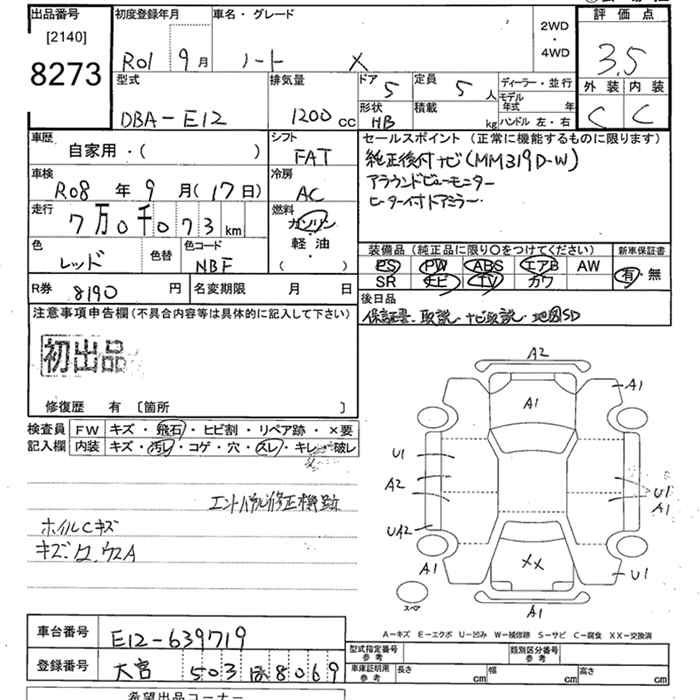 出品番号
[2140]
8273
初度登録年月
R01 9月
車名・グレード
ノート X
2WD
・
4WD
評価点
3.5
外装 内装
C C
型式
DBA-E12
排気量
1200 cc
ドア
5
定員
5 人
形状
HB
積載
kg
ディーラー・並行
モデル年式 年
ハンドル 左・右
車歴
自家用・( )
シフト
FAT
車検
R08 年 9 月(17日)
冷房
AC
走行
7万0千073 km
燃料
ガソリン
・
軽油
( )
色
レッド
色替
色コード
NBF
R券 8190 円
名変期限 月 日
セールスポイント(正常に機能するものに限ります)
純正後付ナビ(MM319D-W)
アラウンドビューモニター
ヒーター付ドアミラー
装備品(純正品に限り〇をつけてください)
新車保証書
PS PW ABS エアB AW
SR ナビ TV カワ
有・無
後日品
保証書、取説、ナビ取説、地図SD
注意事項申告欄(不具合内容等は具体的に記入して下さい)
初出品
修復歴 有 〔箇所 〕
検査員記入欄
FW キズ・飛石・ヒビ割・リペア跡・×要
内装 キズ・汚レ・コゲ・穴・スレ・キレ・破レ
ホイルCキズ
A2
A1
A1
U1
A2
UA2
U1
A1
A1
XX
U1
A1
スペア
A-キズ E-エクボ U-凹み W-補修跡 S-サビ C-腐食 XX-交換済
車台番号
E12-639719
登録番号
大宮 503 8069
型式指定番号
参考
類別区分番号
参考
車庫証明用
参考
長さ cm
幅 cm
高さ cm
希望出品コーナー